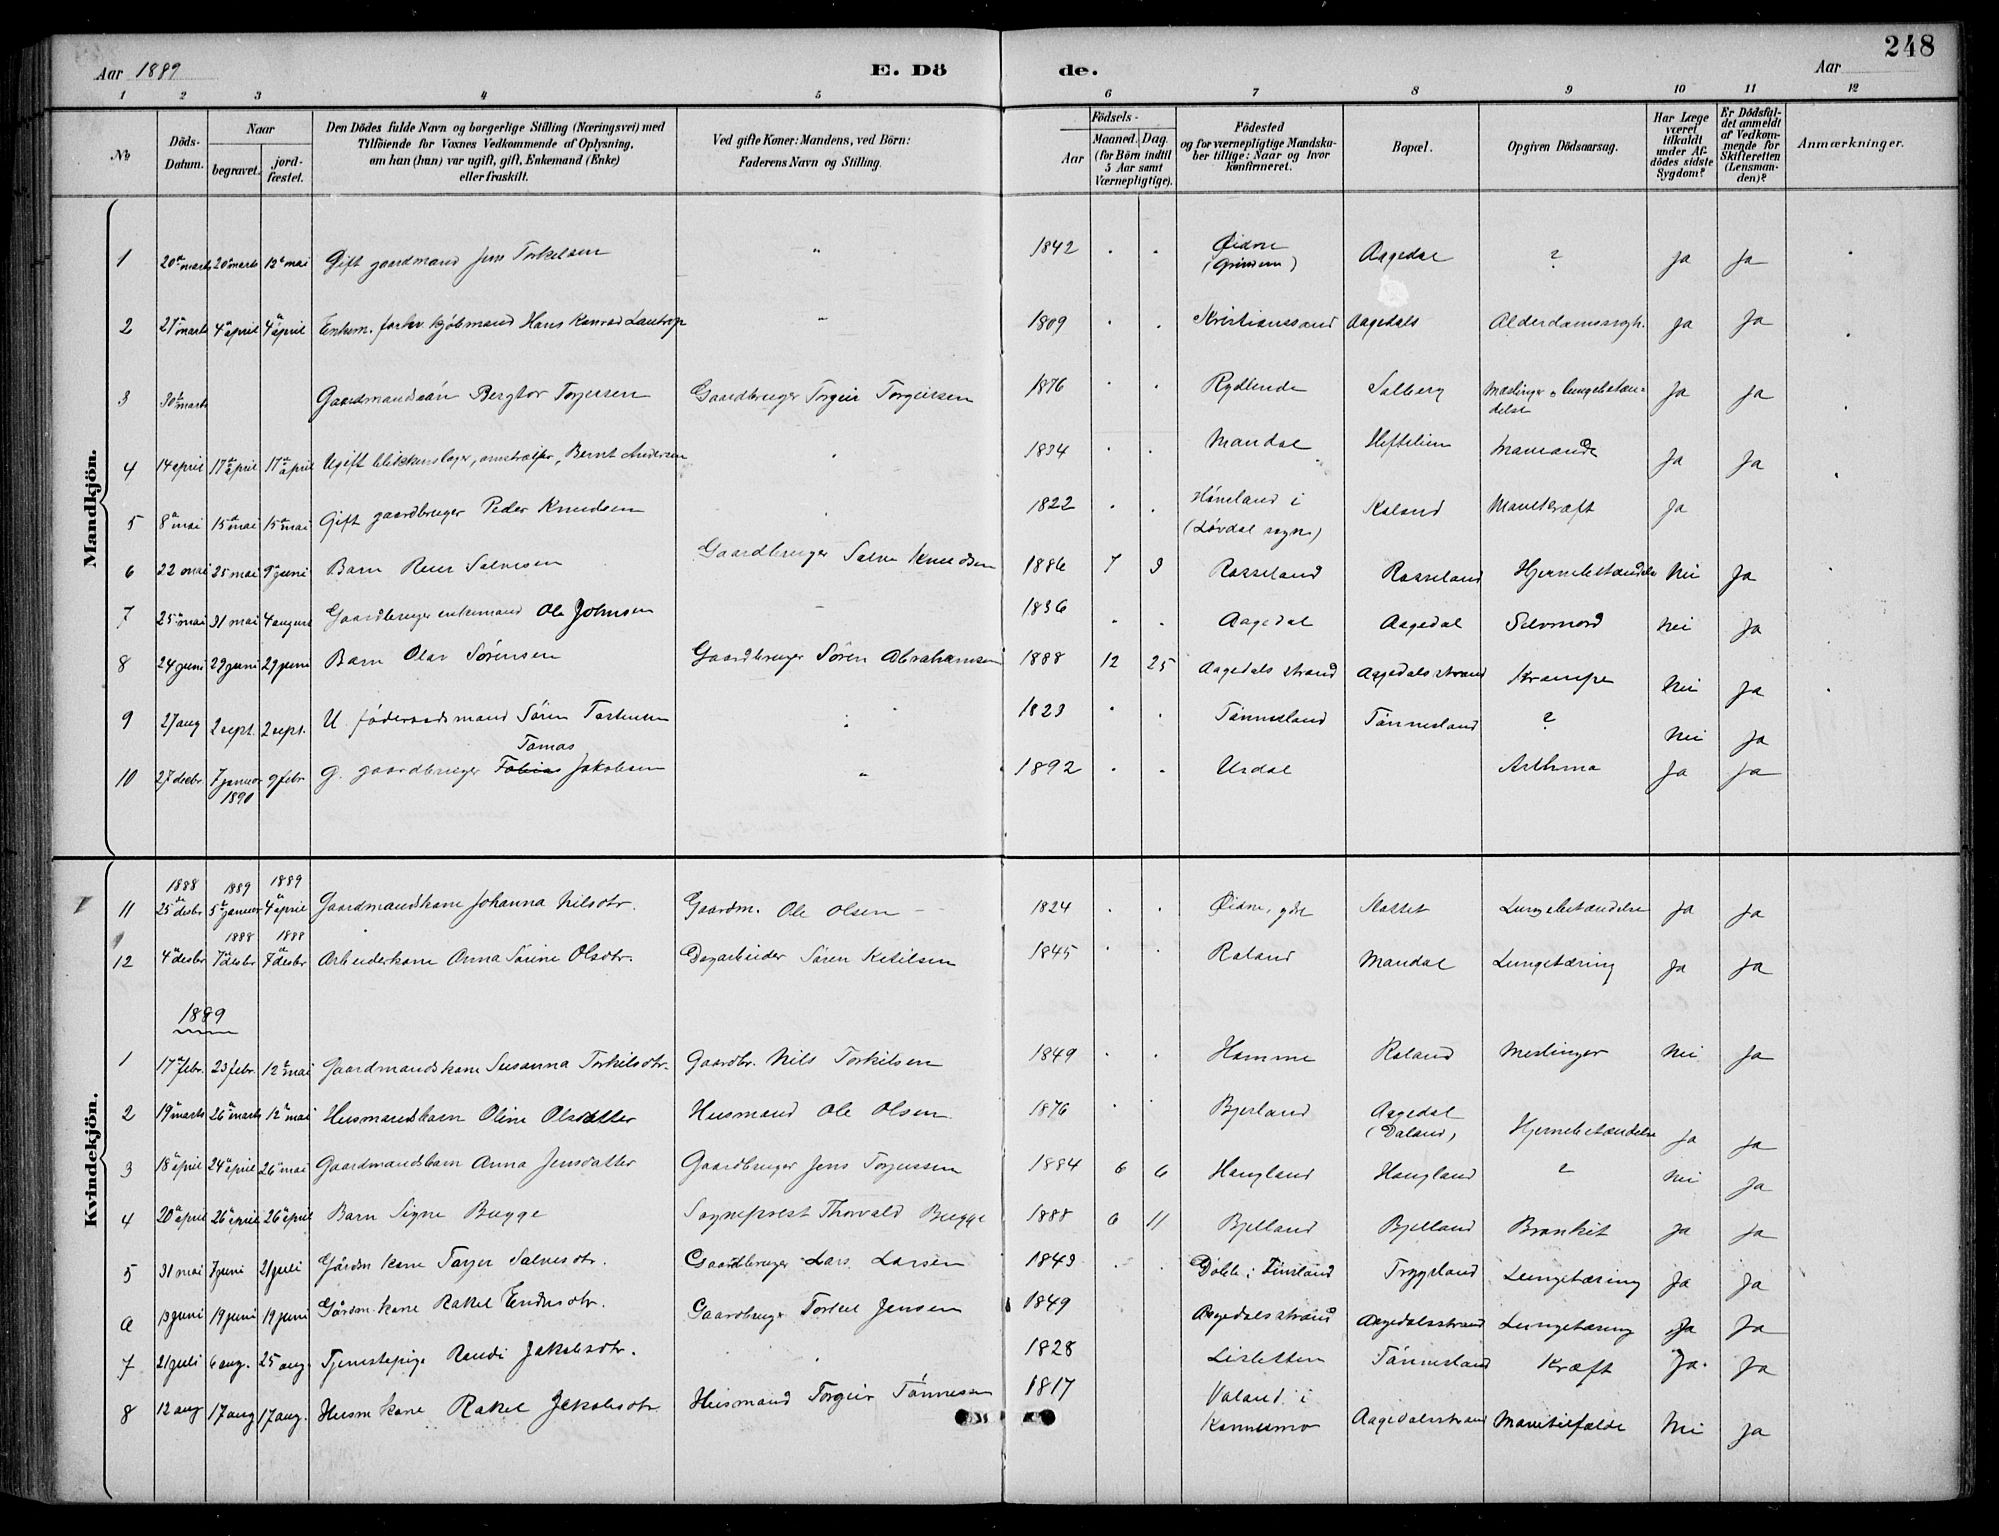 248
Aar 1889 E. Döde. Aar
1 2 3 4 5 6 7 8 9 10 11 12
No
Döds-Datum.
Naar begravet. jordfæstet.
Den Dödes fulde Navn og borgerlige Stilling (Næringsvei) med Tilföiende for Voxnes Vedkommende af Oplysning, om han (hun) var ugift, gift, Enkemand (Enke) eller fraskilt.
Ved gifte Koner: Mandens, ved Börn: Faderens Navn og Stilling.
Födsels-
Aar Maaned. Dag. (for Börn indtil 5 Aar samt Værnepligtige).
Födested og for værnepligtige Mandskaber tillige: Naar og hvor konfirmeret.
Bopæl.
Opgiven Dödsaarsag.
Har Læge været tilkaldt under Afdödes sidste Sygdom?
Er Dödsfaldet anmeldt af Vedkommende for Skifteretten (Lensmanden)?
Anmærkninger.
Mandkjön.
1 20 marts 20 marts 12 mai Gift gaardmand Jens Torkelsen " 1842 Øidne (Grindem) Aagedal ? Ja Ja
2 27 marts 4 april 4 april Enkem. forhv. kjöbmand Hans Konrad Lautrop " 1809 Kristianssand Aagedals Alderdomssvgh. Ja Ja
3 30 marts Gaardmandssön Bergtor Torjersen Gaardbruger Torgeir Torgeirsen 1876 Rydlende Solberg Mæslinger o lungebetændelse Ja Ja
4 14 april 17 april 17 april Ugift blikkenslager, Bernt Andersen 1834 Mandal Heftelien Ja Ja
5 8 mai 15 mai 15 mai Gift gaardbruger Peder Knudsen 1822 Høneland i (Løvdal sogn) Roland Mavekræft Ja
6 22 mai 25 mai 9 juni Barn Reier Salvesen Gaardbruger Salve Knudsen 1886 7 3 Rosseland Rosseland Hjernebetændelse Nei Ja
7 25 mai 31 mai 4 august Gaardbruger enkemand Ole Johnsen 1836 Aagedal Aagedal Selvmord Nei Ja
8 24 juni 29 juni 29 juni Barn Olav Sørensen Gaardbruger Sören Abrahamsen 1888 12 25 Aagedalsstrand Aagedalsstrand Krampe Nei Ja
9 27 aug 2 sept. 2 sept. U. föderaadsmand Sören 1823 Tönnesland Tönnesland ? Nei Ja
Tomas
10 27 desbr 7 januar 1890 9 febr G. gaardbruger Tobias Jakobsen " 1892 Usdal Asthma Ja Ja
Kvindekjön.
1888 1889 1889
11 25 desbr 5 januar 4 april Gaardmandskone Johanna Nilsdtr. Gaardm. Ole Olsen 1824 Øidne, ydre Lungebetændelse Ja Ja
1888 1888
12 4 desbr 7 desbr 7 desbr Arbeiderkone Anna Sørine Olsdtr. Dagarbeider Sören Ketilsen 1845 Roland Mandal Lungetæring Ja Ja
1889
1 17 febr. 23 febr. 12 mai Gaardmandskone Susanna Torkilsdtr. Gaardbr. Nils Torkilsen 1849 Homme Roland Meslinger Nei Ja
2 19 marts 26 marts 12 mai Husmandsbarn Oline Olsdatter Husmand Ole Olsen 1876 Bjerland Aagedal (Daland) Hjernebetændelse Ja Ja
3 18 april 24 april 26 mai Gaardmandsbarn Anna Jensdatter Gaardbruger Jens Torjussen 1884 6 6 Haugland Haugland ? Nei Ja
4 20 april 26 april 26 april Barn Signe Bugge Sogneprest Thorvald Bugge 1888 6 11 Bjelland Bjelland Bronkit Ja Ja
5 31 mai 7 juni 21 juli Gårdm kone Torjer Salvesdtr. Gaardbruger Lars Larsen 1843 Trygsland Lungetæring Ja Ja
6 13 juni 19 juni 19 juni Gårdm. kone Rakel Endresdtr. Gaardbruger Torkel Jensen 1849 Aagedalsstrand Aagedalsstrand Lungetæring Ja Ja
7 21 juli 6 aug. 25 aug. Tjenestepige Randi Jakobsdtr. 1828 Lisletten Tönnesland Kræft Ja. Ja
8 12 aug 17 aug 17 aug. Husm kone Rakel Jakobsdtr Husmand Torgeir Tönnessen 1817 Valand i Konnesmo Aagedalsstrand Mavetilfælde Nei Ja